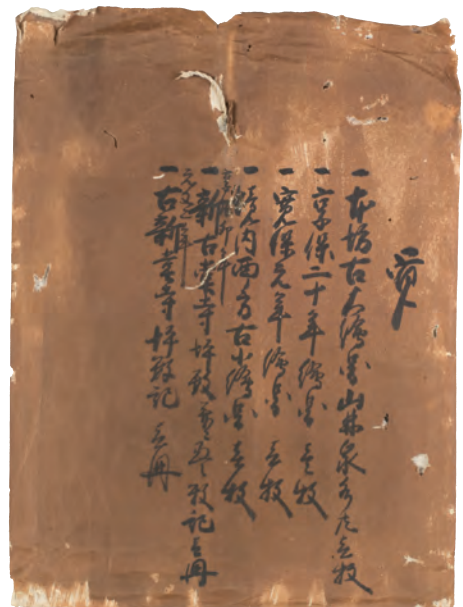 覚
一本坊古大絵図山林泉水 壱枚
一享保二十年絵図 壱枚
一寛保元年絵図 壱枚
一境内 方古小絵図 壱枚
一新古堂寺坪数 記壱冊
一古新堂寺坪数記 壱冊